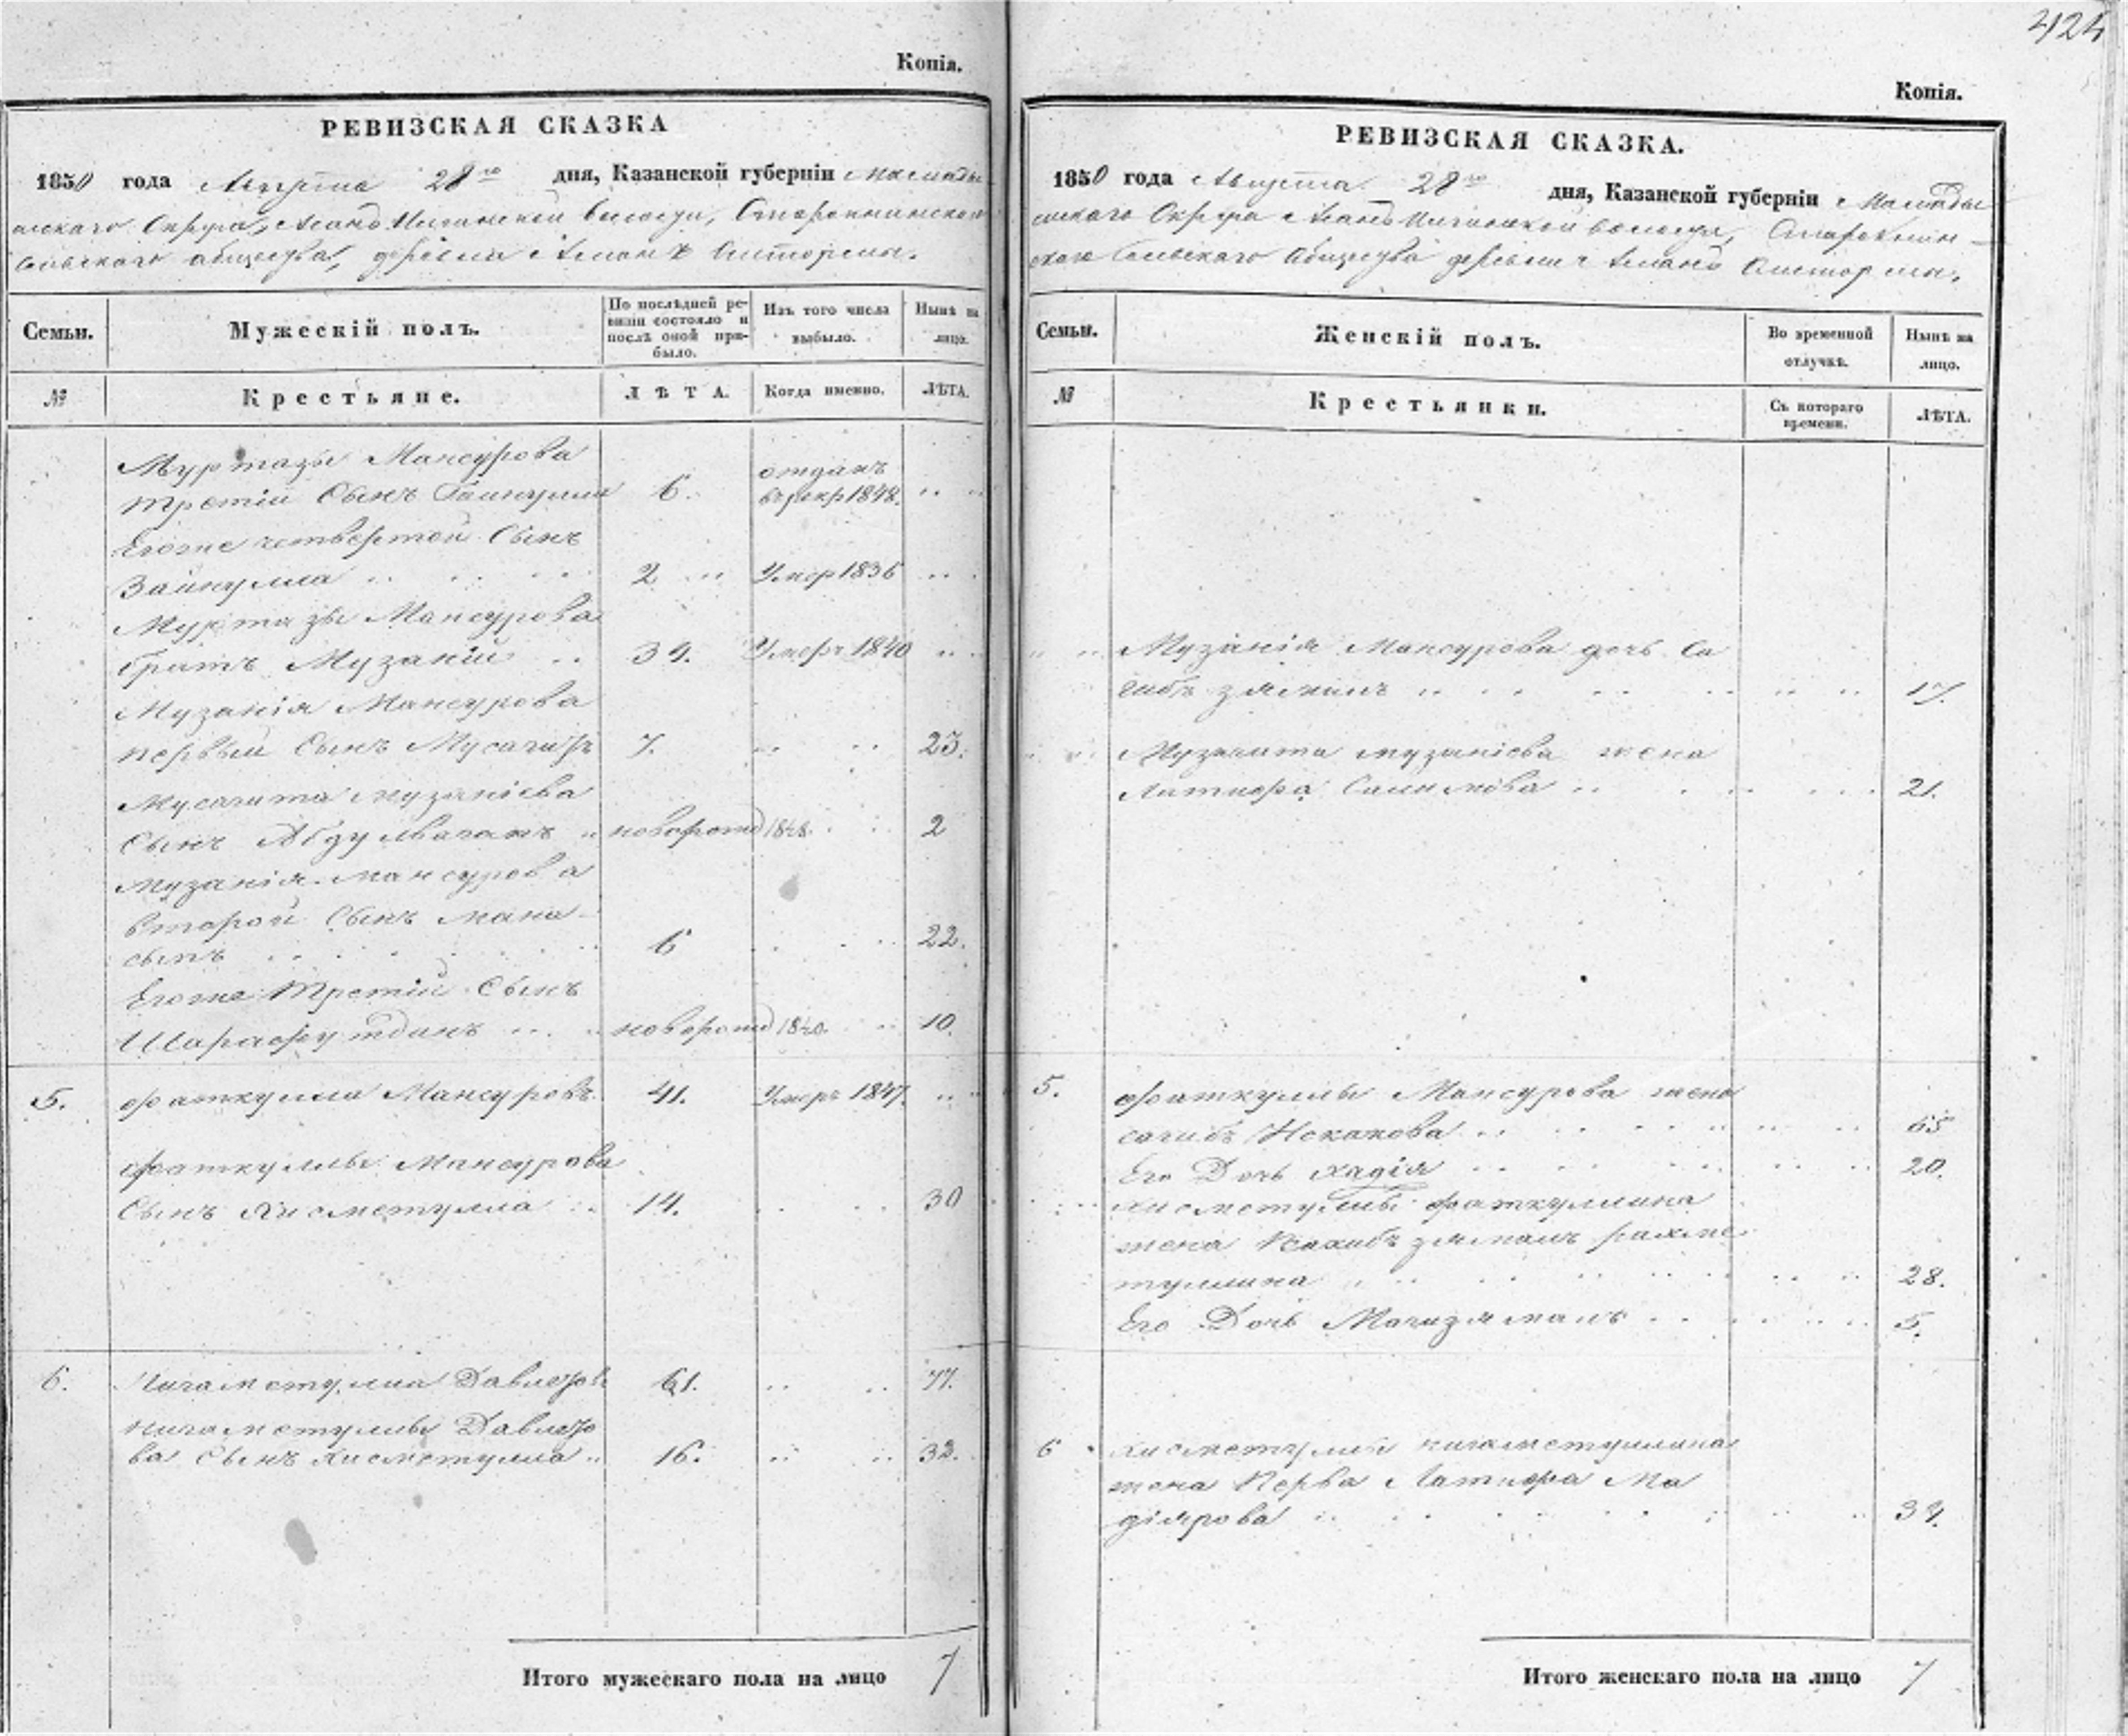 Копія.
РЕВИЗСКАЯ СКАЗКА
1850 года Августа 28го дня, Казанской губерніи Мамады
шскаго Округа, волости,
Сельскаго общества, деревни
Семьи.
Мужескій полъ.
По послѣдней ре-
визіи состояло и
послѣ оной при-
было.
Изъ того числа
выбыло.
Нынѣ на
лицо.
№
Крестьяне.
ЛѢТА.
Когда именно.
ЛѢТА.
Муртазы Мансурова
третій Сынъ 6. отданъ
въ рекр 1848.
Егоже четвертой Сынъ
Зайнулла 2 Умер 1836
Муртазы Мансурова
братъ Музаній 39. Умеръ 1840
Музанія Мансурова
первый Сынъ 7. 23.
Музаніева
Сынъ Абдулвагапъ новорожд 1848. 2
Музанія Мансурова
второй Сынъ Мана-
сыпъ 6 22.
Егоже Третій Сынъ
Шарафутдинъ новорожд 1840. 10.
5. Фаткулла Мансуровъ. 41. Умеръ 1847.
Фаткуллы Мансурова
Сынъ Хисметулла 14. 30
6. Нигаметулла Давлетов 61. 77.
Нигаметуллы Давлето
ва Сынъ Хисметулла 16. 32.
Итого мужескаго пола на лицо 7
424
Копія.
РЕВИЗСКАЯ СКАЗКА.
1850 года Августа 28го дня, Казанской губерніи Мамады
шскаго Округа волости,
скаго Сельскаго Общества деревни
Семьи.
Женскій полъ.
Во временной
отлучкѣ.
Нынѣ на
лицо.
№
Крестьянки.
Съ котораго
времени.
ЛѢТА.
Музанія Мансурова дочь Са
гибъ зямалъ 17.
Музаніева жена
Латифа Салимова 21.
5. Фаткуллы Мансурова жена
сагибъ 65
Его Дочь Хадія 20.
Хисметуллы Фаткуллина
жена зямалъ рахме
туллина 28.
Его Дочь Магизямалъ 5.
6 Хисметуллы нигаметуллина
жена Перва Латифа Ма
діярова 34.
Итого женскаго пола на лицо 7